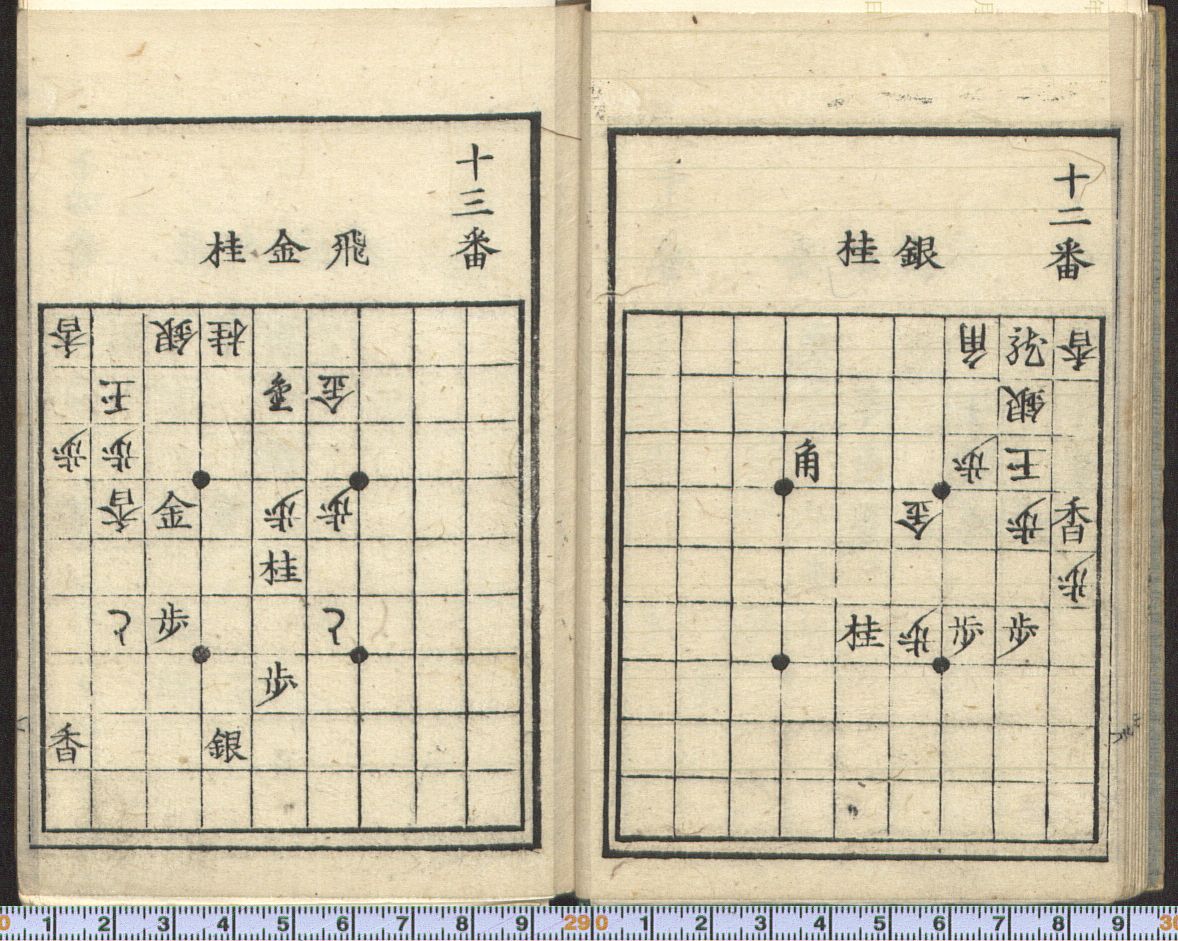 十二番
銀桂
角龍香
銀
角歩王
金歩香
歩
桂歩歩歩
十三番
飛金金桂
香銀桂
王金
歩歩
香金歩歩
桂
と歩と
歩
香銀
0 1 2 3 4 5 6 7 8 9 29 0 1 2 3 4 5 6 7 8 9 30